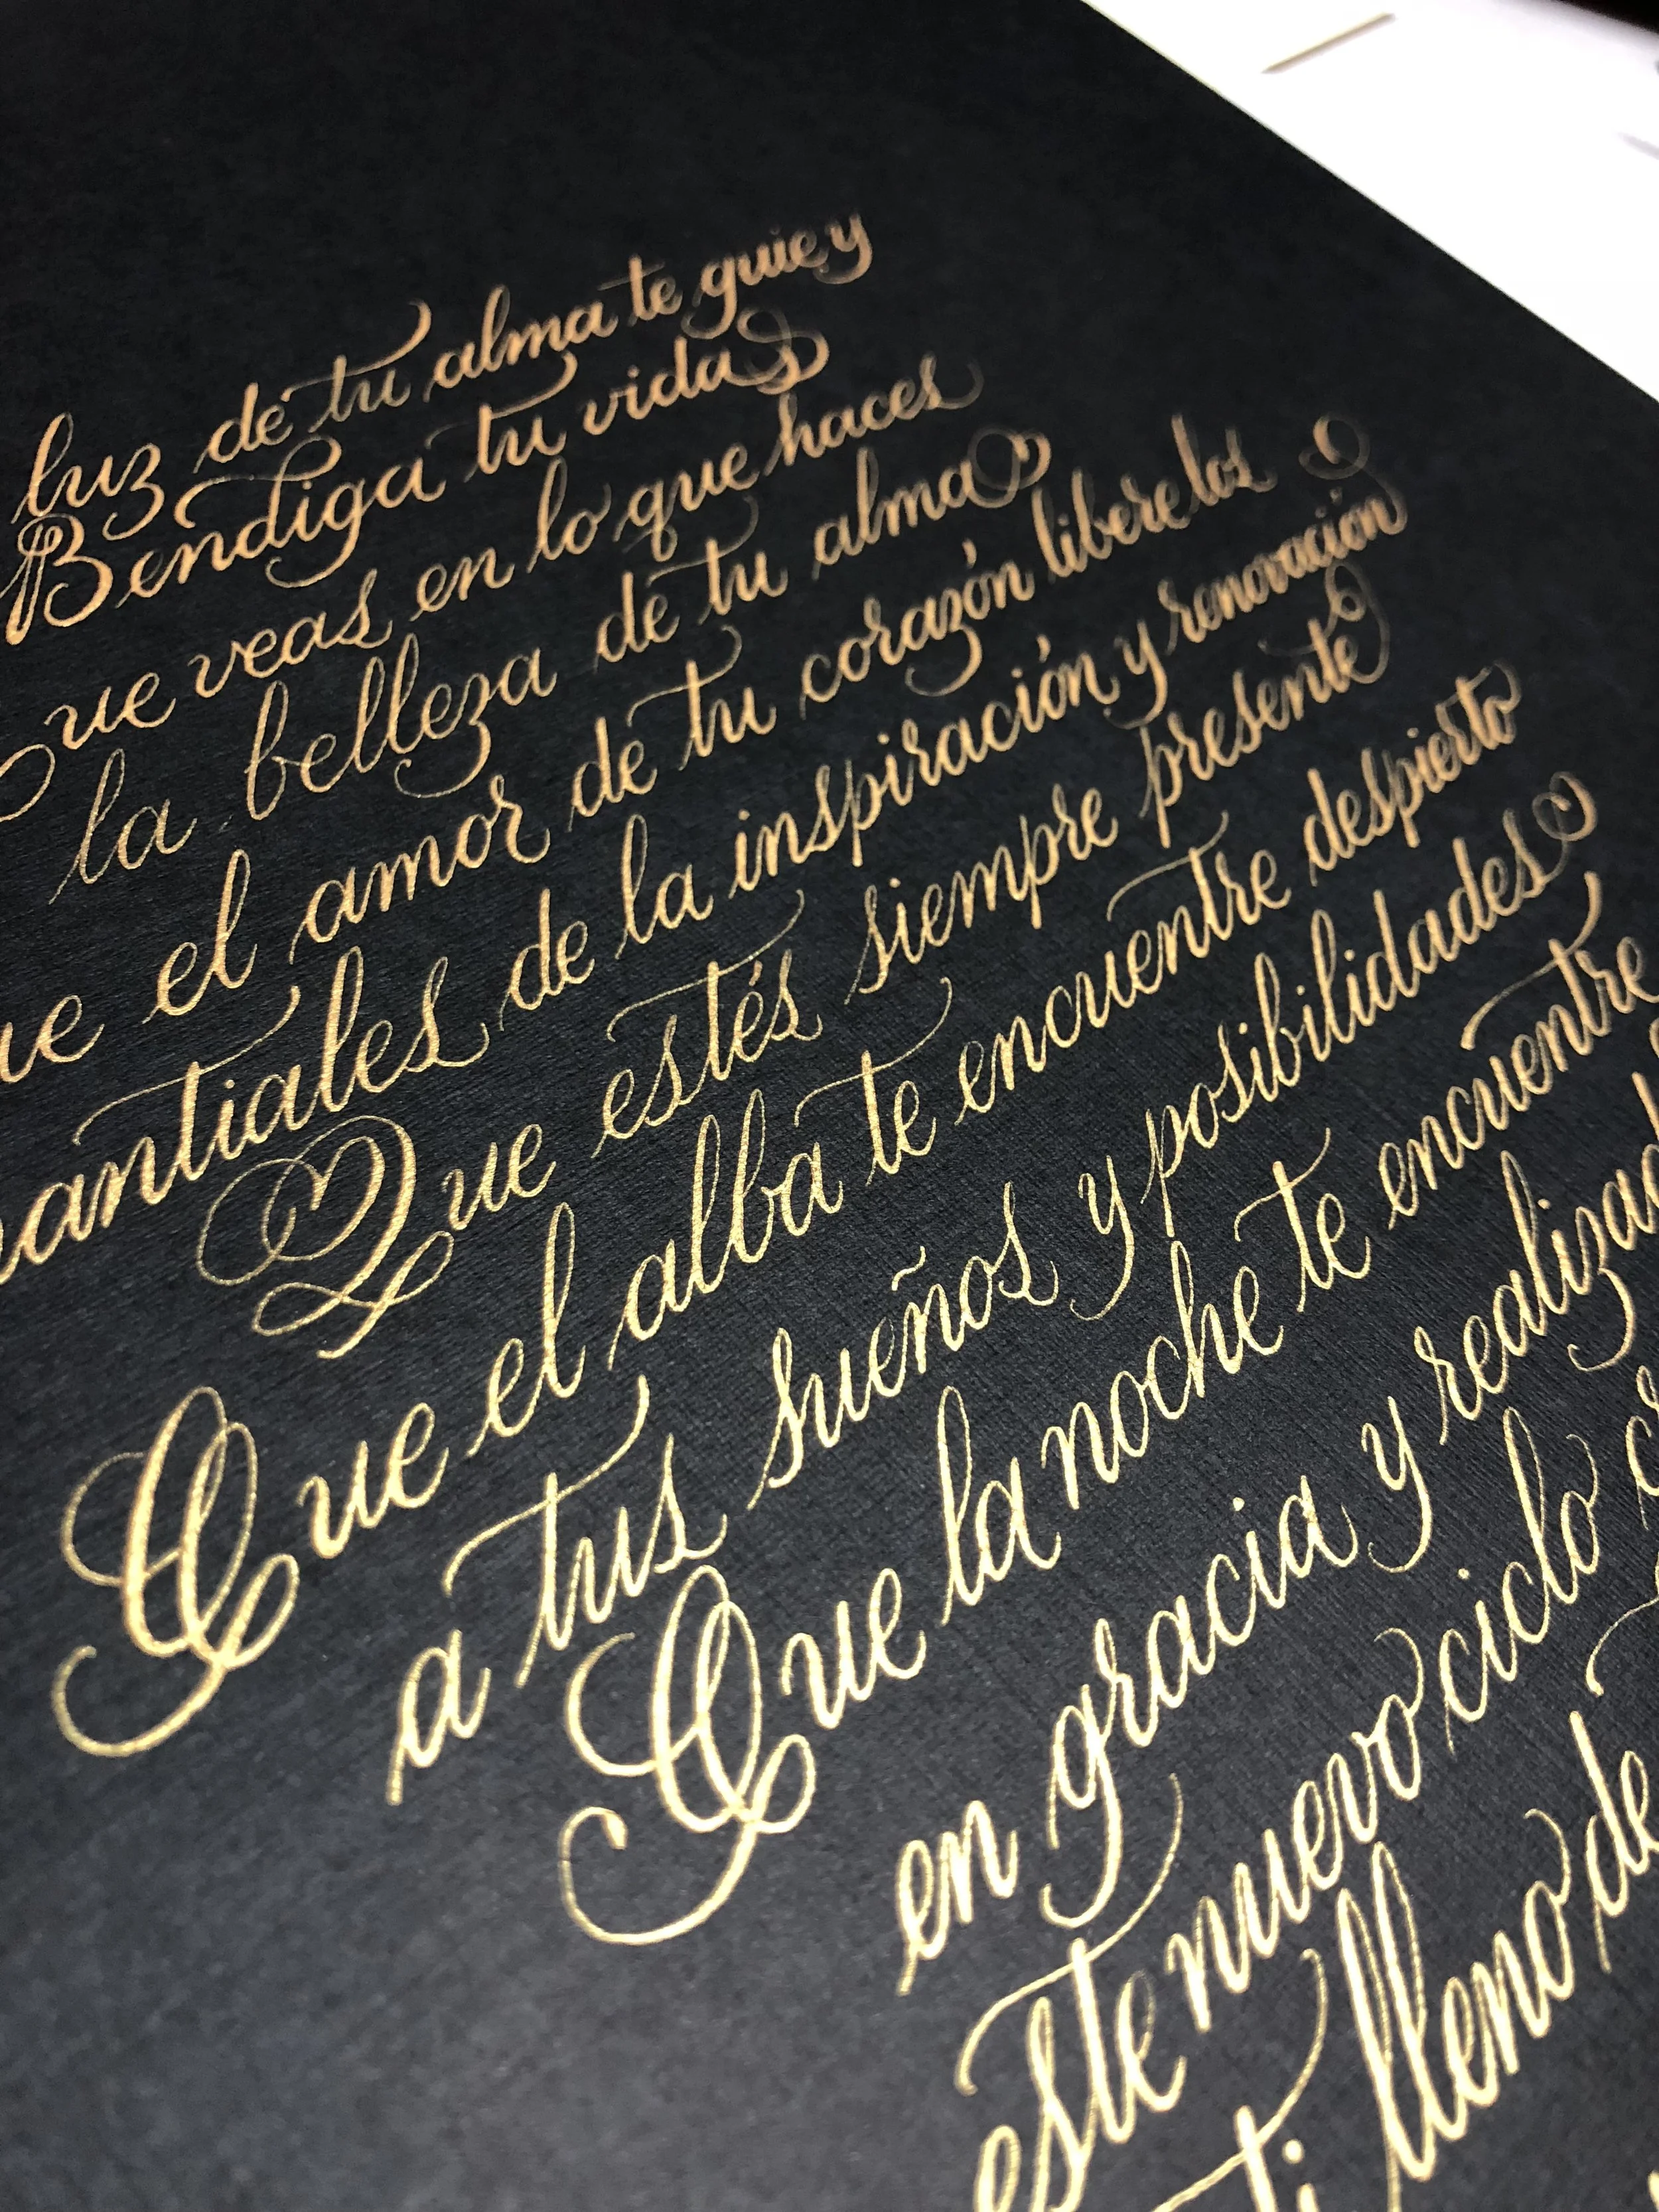 luz de tu alma te guie y
Bendiga tu vida
Que veas en lo que haces
la belleza de tu alma
ue el amor de tu corazón libere los
antiales de la inspiración y renovación
Que estés siempre presente
Que el alba te encuentre despierto
a tus sueños y posibilidades
Que la noche te encuentre
en gracia y realizad
este nuevo ciclo
ti lleno de